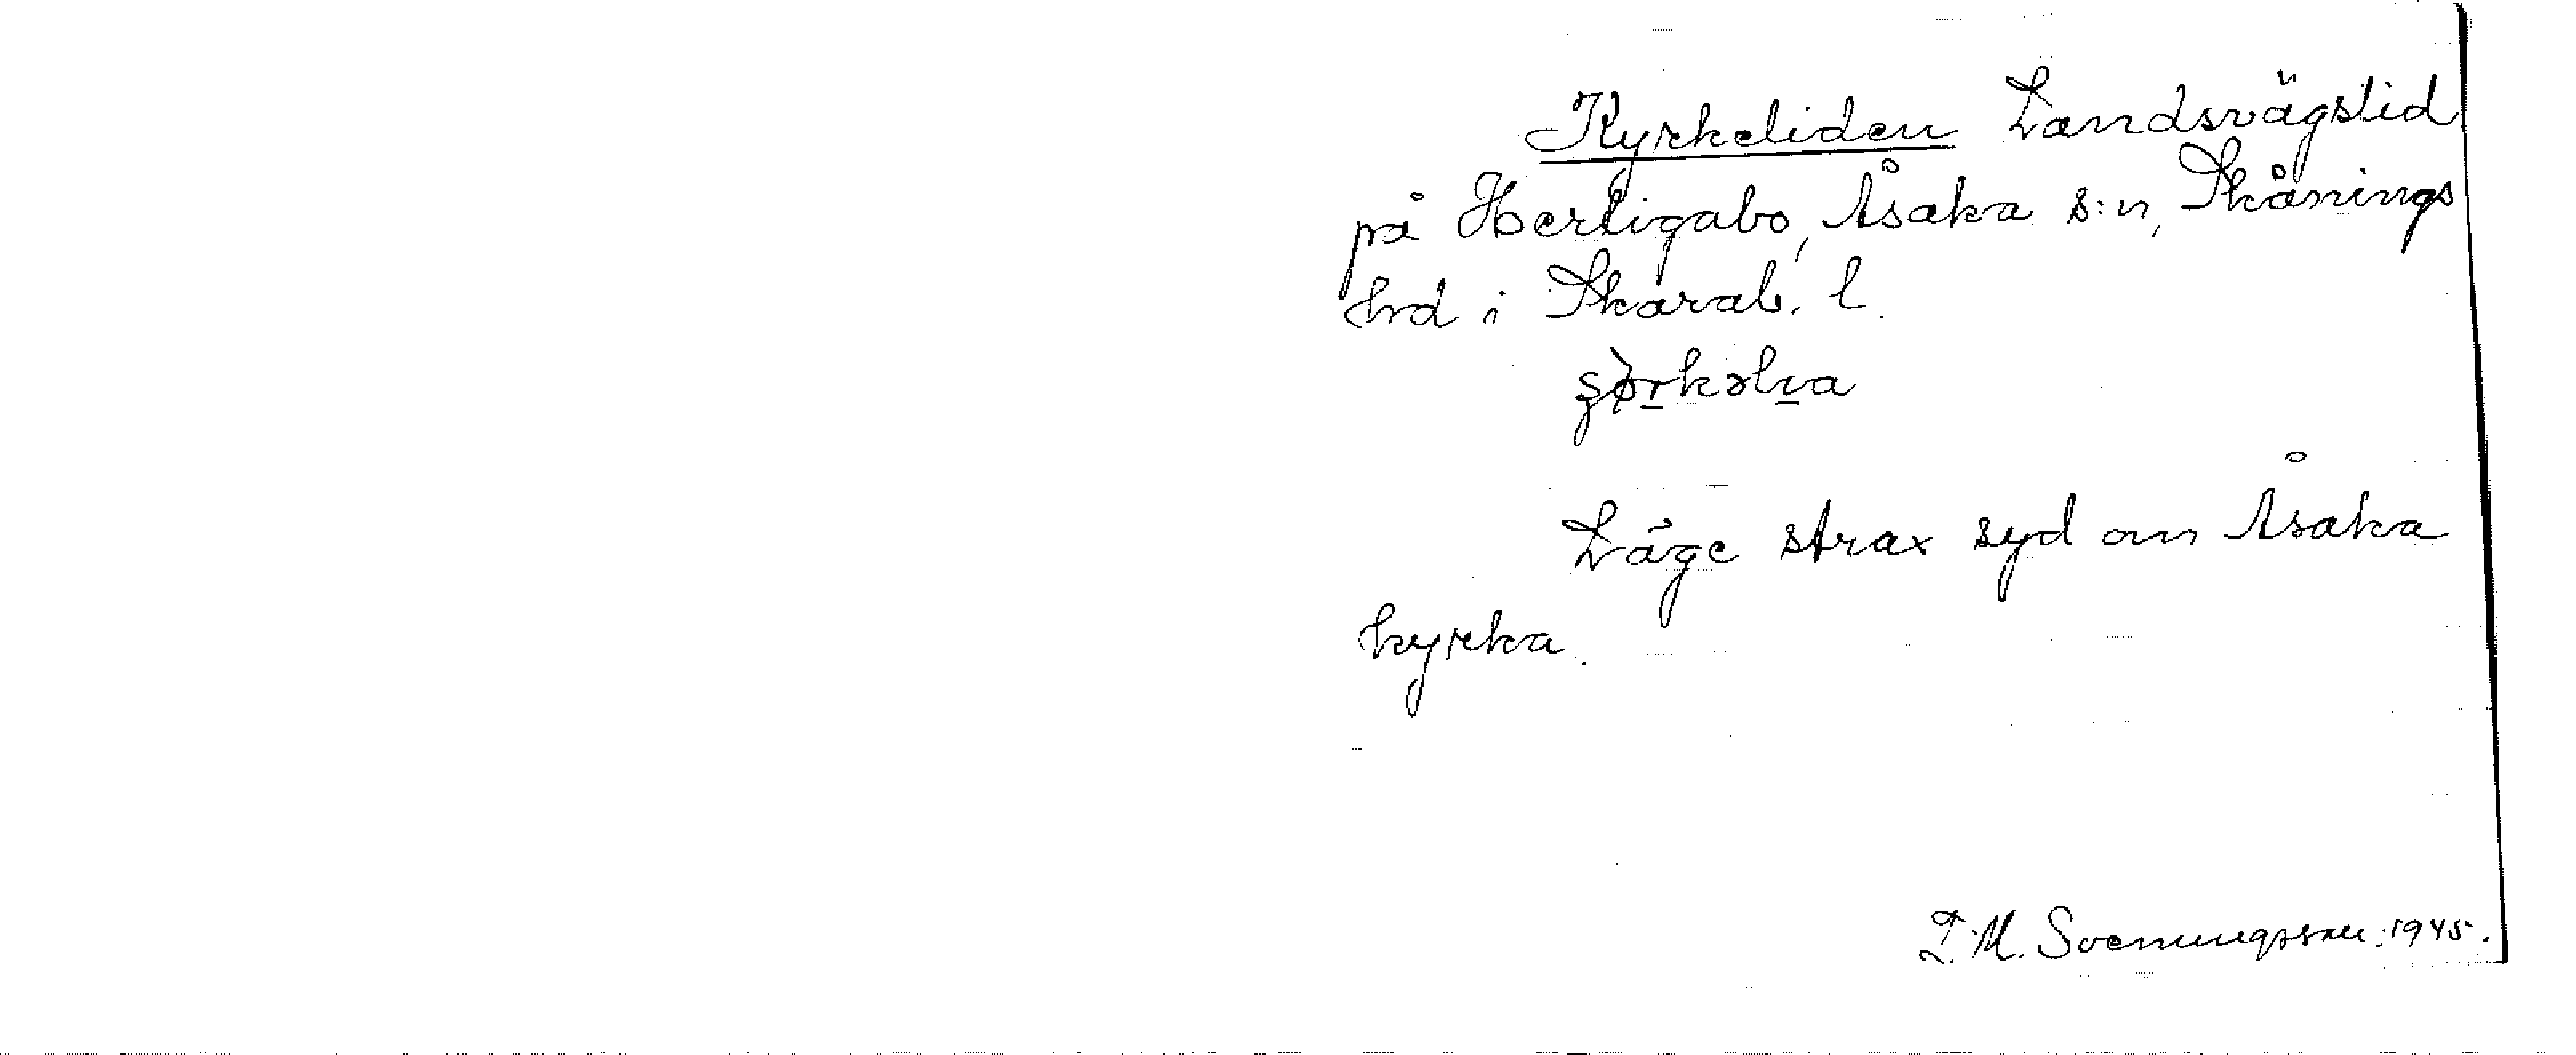 Kyrkeliden Landsvägslid
på Hertigabo, Åsaka s:n, Skånings
hrd i Skarab. l.
Läge strax syd om Åsaka
kyrka.
M. Svenungsson. 1945.